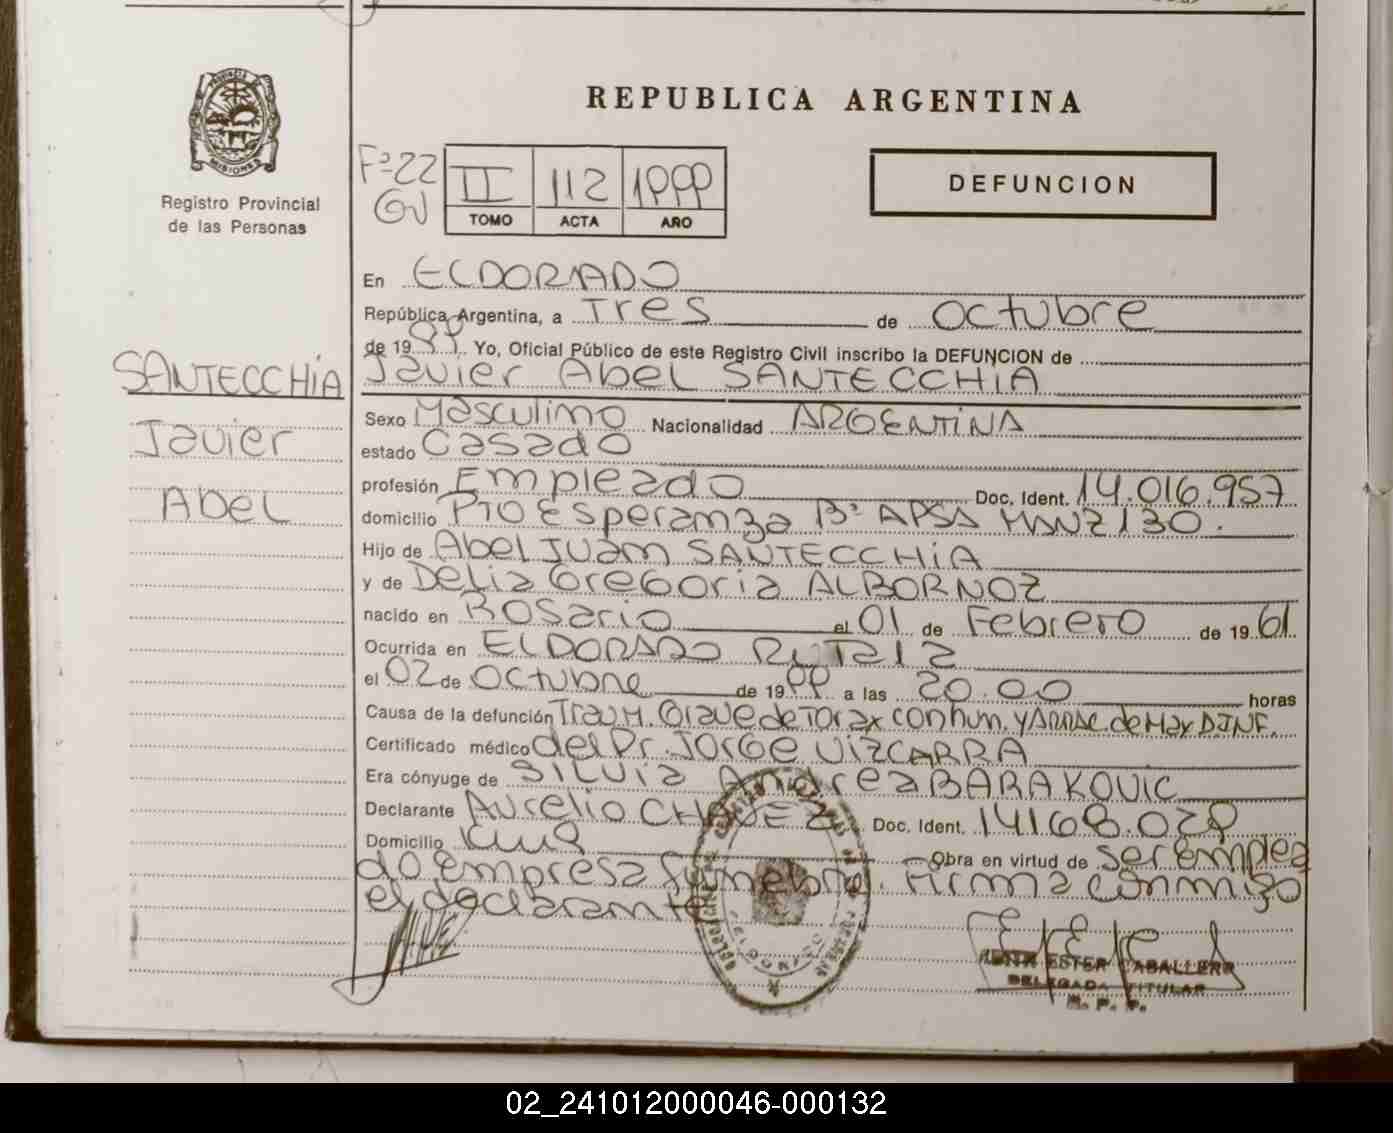 REPUBLICA ARGENTINA
PROVINCIA DE MISIONES
Registro Provincial
de las Personas
Fº 22
II 112 1999
TOMO ACTA AÑO
DEFUNCION
En ELDORADO
República Argentina, a Tres de Octubre
de 1999. Yo, Oficial Público de este Registro Civil inscribo la DEFUNCION de
Javier Abel SANTECCHIA
SANTECCHIA
Javier
Abel
Sexo Masculino Nacionalidad ARGENTINA
estado Casado
profesión Empleado Doc. Ident. 14.016.957
domicilio Pto Esperanza Bº APSA MANZ 130.
Hijo de Abel Juan SANTECCHIA
y de Delia Gregoria ALBORNOZ
nacido en Rosario el 01 de Febrero de 1961
Ocurrida en ELDORADO RUTA 12
el 02 de Octubre de 1999 a las 20.00 horas
Causa de la defunción Traum. Grave de Torax con hun. y ARRAC. de
Certificado médico del Dr. Jorge VIZCARRA
Era cónyuge de SILVIA Andrea BARAKOVIC
Declarante Aurelio CHAVEZ Doc. Ident. 14168.029
Domicilio Km 9 Obra en virtud de ser emplea
do empresa funebre. Firma conmigo
el declarante
ESTER CABALLERO
DELEGADA TITULAR
R. P. P.
02_241012000046-000132